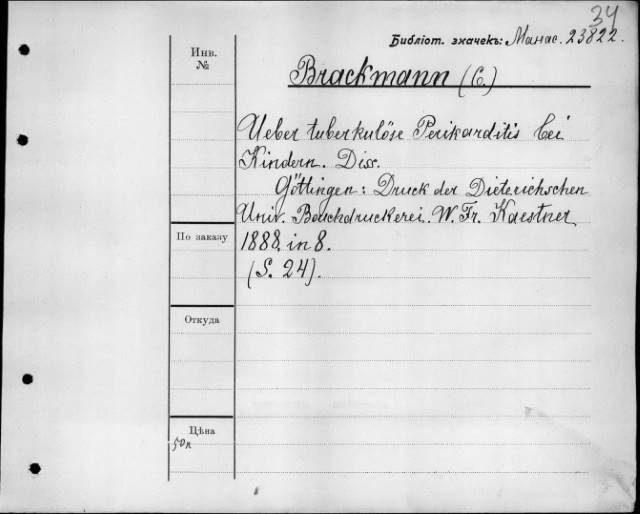 34
Библіот. значекъ: Манас. 23822.
Инв.
№
Brackmann (C.)
Ueber tuberkulöse Perikarditis bei
Kindern. Diss.
Göttingen: Druck der Dieterichschen
Univ. Buchdruckerei. W. Fr. Kaestner
По заказу
1888 in 8.
(S. 24).
Откуда
Цѣна
50к